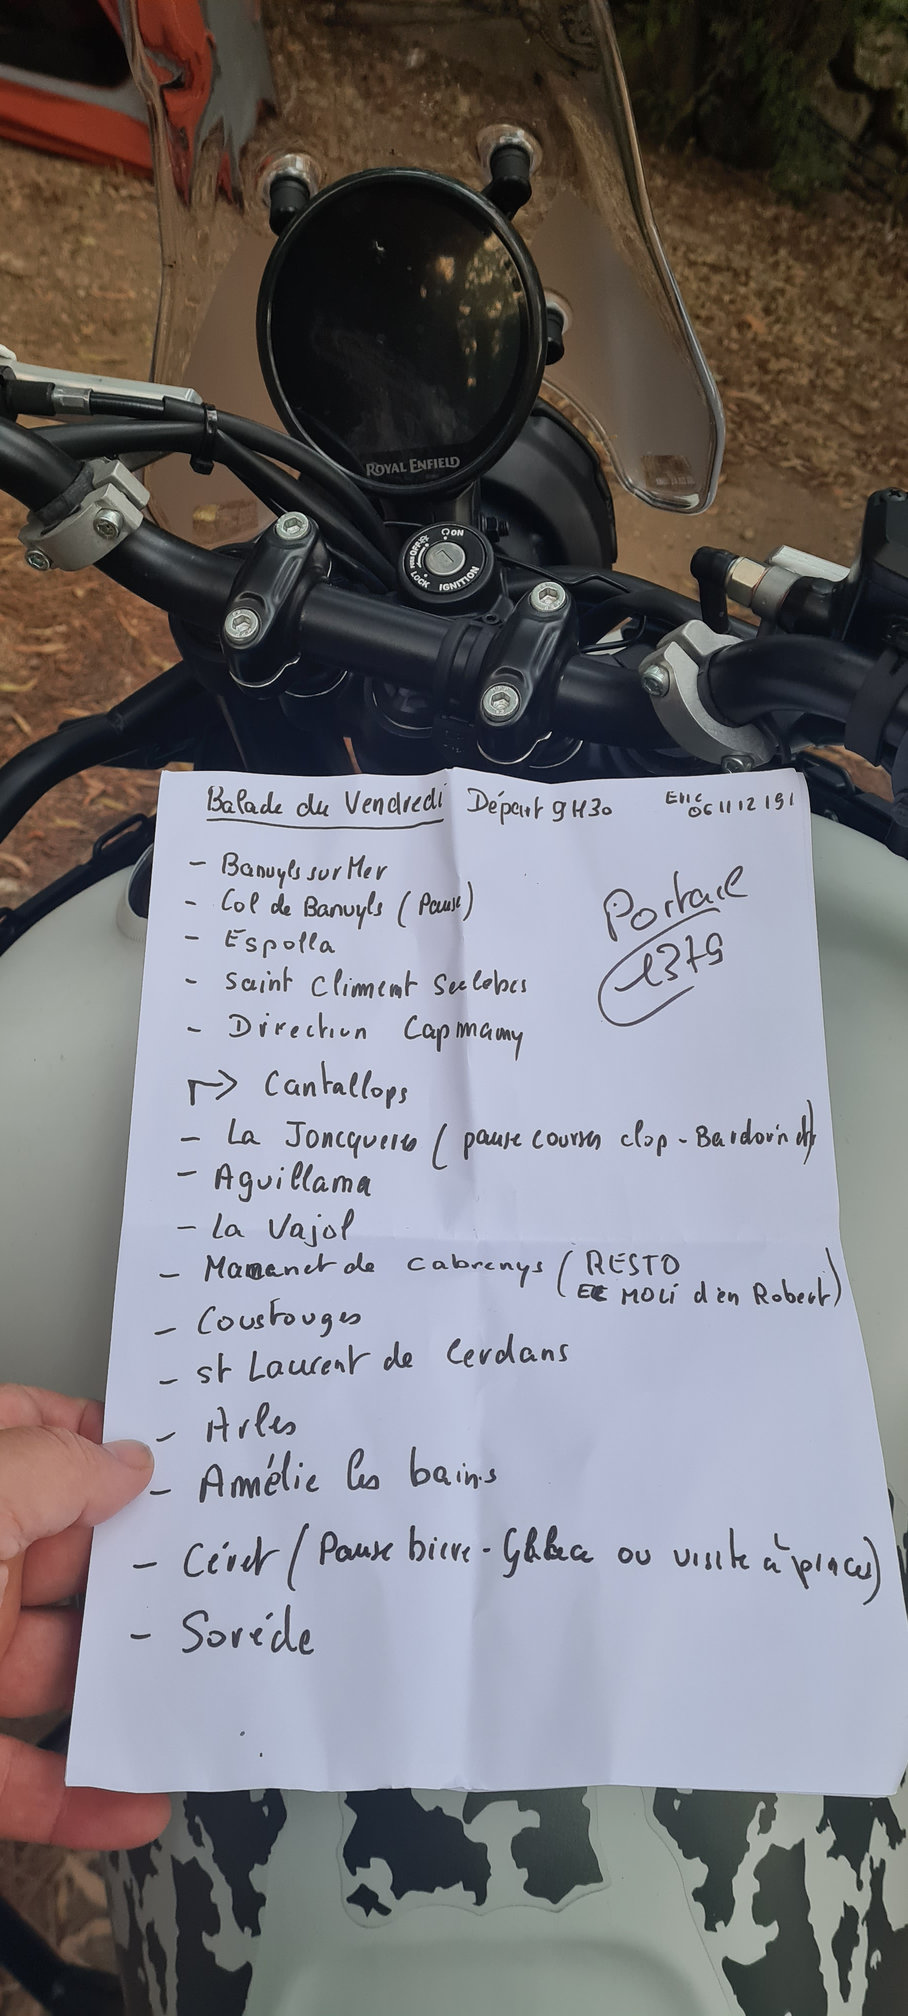 ROYAL ENFIELD
ON
OFF
LOCK
IGNITION
Balade du Vendredi Départ 9H30
Eric
06 11 12 191
- Banuyls sur Mer
- Col de Banuyls (Pause)
- Espolla
- Saint Climent
- Direction Capmamy
Portail
1379
→ Cantallops
- La Joncqueres (pause courses clop - Bardovin
- Aguillama
- La Vajol
- de Cabrenys (RESTO
MOLi d'en Robert)
- Coustouges
- St Laurent de Cerdans
- Arles
- Amélie les bains
- Céret (Pause biere - ou visite à places)
- Soréde